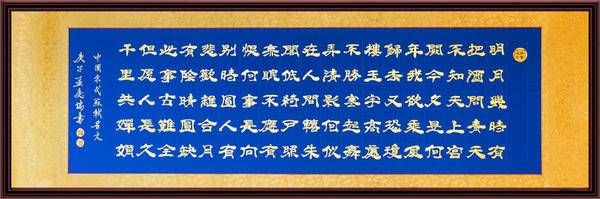 明月幾時有
把酒問青天
不知天上宮
闕今夕是何
年我欲乘風
歸去又恐瓊
樓玉宇高處
不勝寒起舞
弄清影何似
在人間轉朱
閣低綺戶照
無眠不應有
恨何事長向
別時圓人有
悲歡離合月
有陰晴圓缺
此事古難全
但愿人長久
千里共嬋娟
中國宋代蘇軾文
庚子書